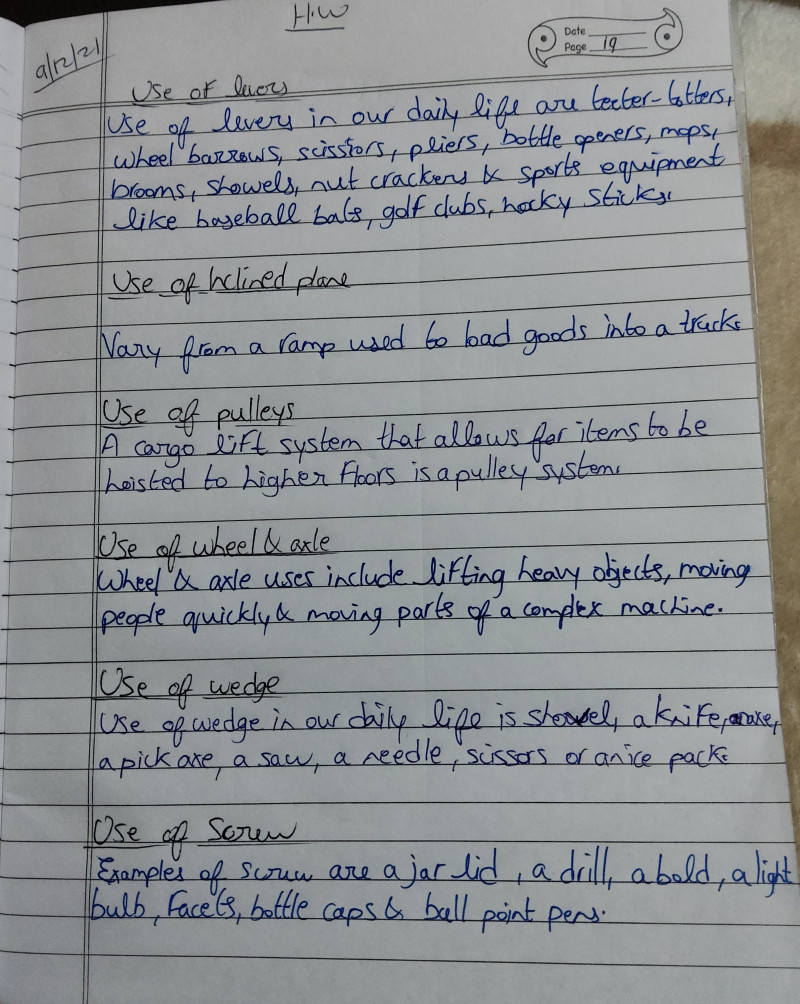 H.W
9/12/21
Date
Page 19
Use of levers
Use of levers in our daily life are teeter-totters,
wheel barrows, scisstors, pliers, bottle openers, mops,
brooms, showels, nut crackers & sports equipment
like baseball bats, golf clubs, hocky sticks.
Use of Inclined plane
Vary from a ramp used to load goods into a truck.
Use of pulleys
A cargo lift system that allows for items to be
hoisted to higher floors is a pulley system.
Use of wheel & axle
Wheel & axle uses include lifting heavy objects, moving
people quickly & moving parts of a complex machine.
Use of wedge
Use of wedge in our daily life is showel, a knife, an axe,
a pick axe, a saw, a needle, scissors or an ice pack.
Use of Screw
Examples of screw are a jar lid, a drill, a bold, a light
bulb, Facets, bottle caps & ball point pens.